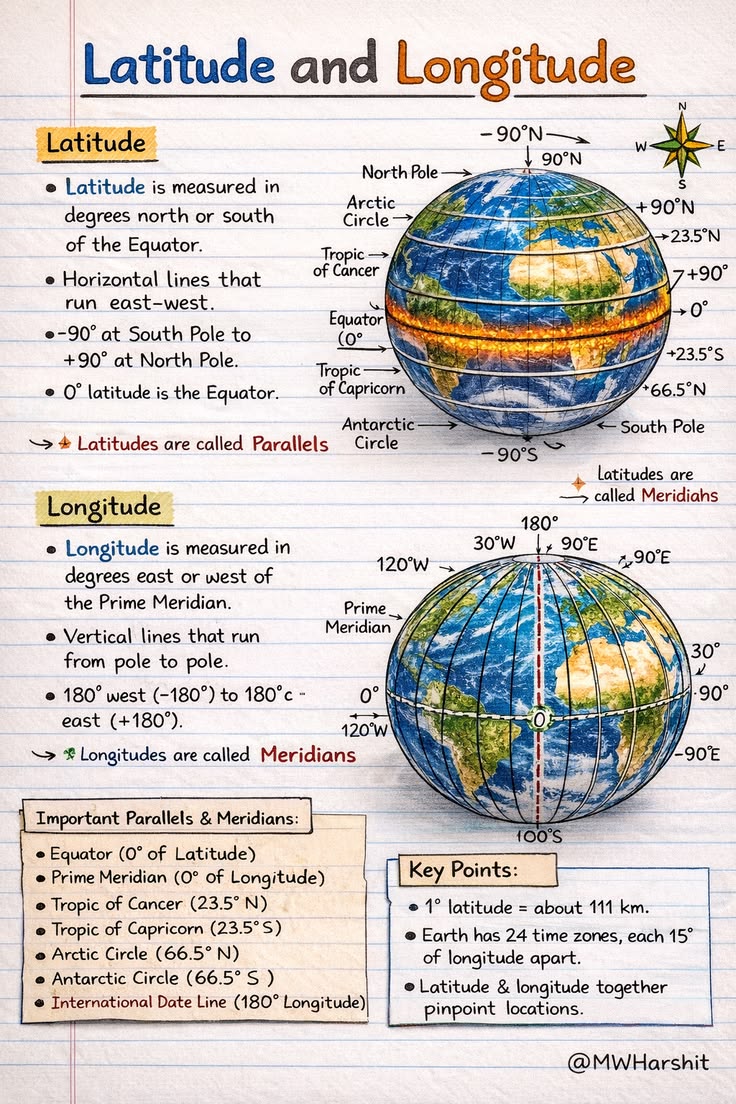 Latitude and Longitude
Latitude
• Latitude is measured in
degrees north or south
of the Equator.
• Horizontal lines that
run east–west.
• -90° at South Pole to
+90° at North Pole.
• 0° latitude is the Equator.
Latitudes are called Parallels
N
W
E
S
-90°N
90°N
North Pole
Arctic
Circle
Tropic
of Cancer
Equator
(0°
Tropic
of Capricorn
Antarctic
Circle
+90°N
23.5°N
+90°
0°
+23.5°S
+66.5°N
South Pole
-90°S
Latitudes are
called Meridiahs
Longitude
• Longitude is measured in
degrees east or west of
the Prime Meridian.
• Vertical lines that run
from pole to pole.
• 180° west (-180°) to 180°c -
east (+180°).
Longitudes are called Meridians
180°
30°W
90°E
90°E
120°W
Prime
Meridian
0°
120°W
0
30°
90°
-90°E
100°S
Important Parallels & Meridians:
• Equator (0° of Latitude)
• Prime Meridian (0° of Longitude)
• Tropic of Cancer (23.5° N)
• Tropic of Capricorn (23.5° S)
• Arctic Circle (66.5° N)
• Antarctic Circle (66.5° S )
• International Date Line (180° Longitude)
Key Points:
• 1° latitude = about 111 km.
• Earth has 24 time zones, each 15°
of longitude apart.
• Latitude & longitude together
pinpoint locations.
@MWHarshit